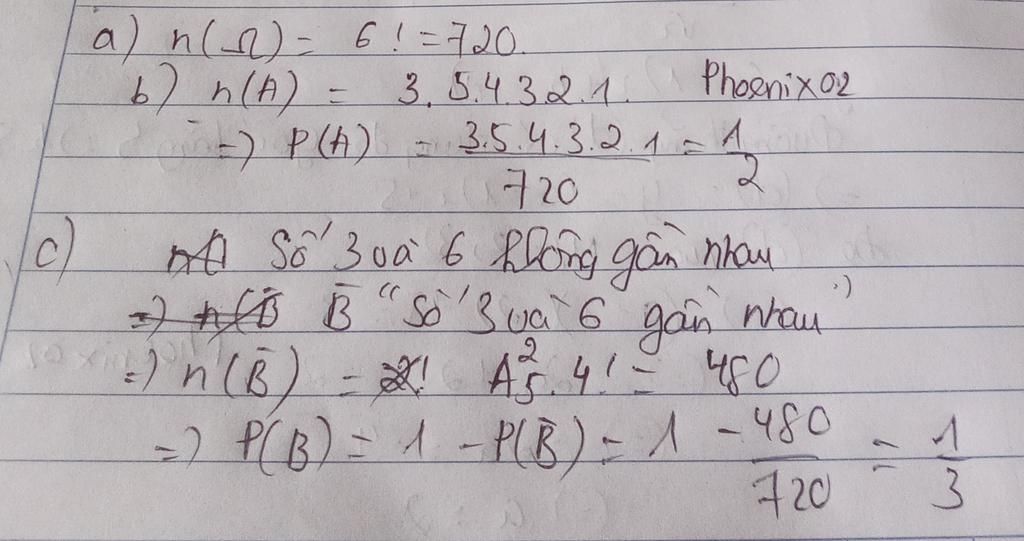 a) n(Ω) = 6! = 720.
b) n(A) = 3.5.4.3.2.1. Phoenix02
=> P(A) = 3.5.4.3.2.1/720 = 1/2
c) Số 3 và 6 không gần nhau
B̄ "Số 3 và 6 gần nhau"
=> n(B̄) = A₅².4! = 480
=> P(B) = 1 - P(B̄) = 1 - 480/720 = 1/3